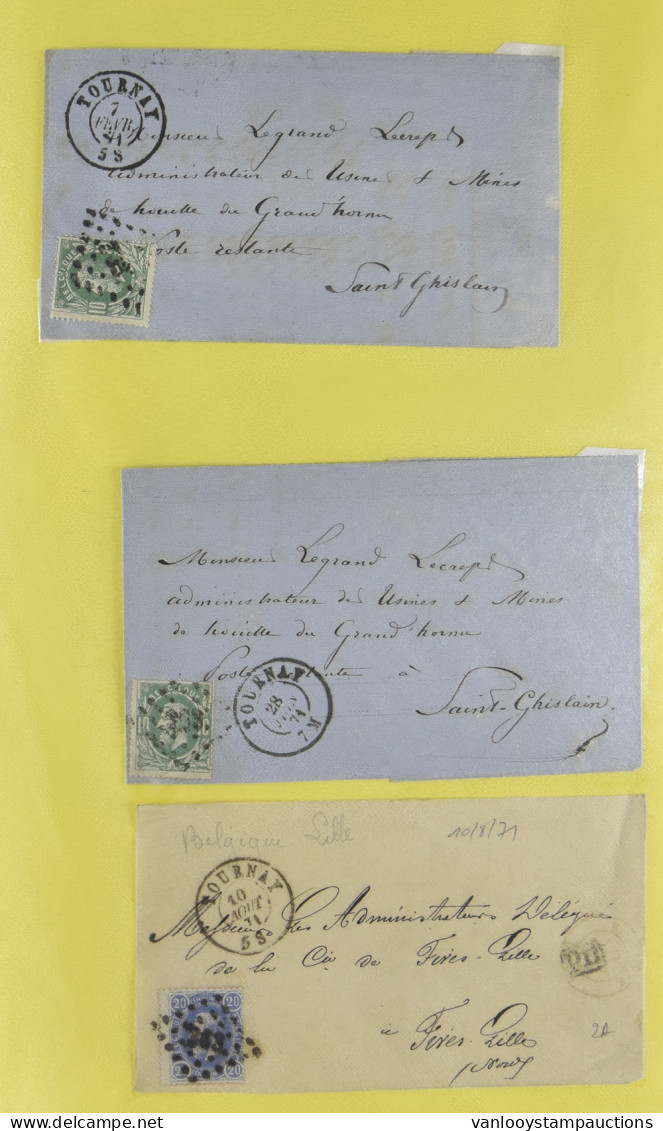 TOURNAY
7
FEVR
71
5 S
Monsieur Legrand Lecrep
administrateur des Usines & Mines
de houille du Grand hornu
Poste restante
Saint Ghislain
BELGIQUE
10
Monsieur Legrand Lecrep
administrateur des Usines & Mines
de houille du Grand hornu
Poste à
Saint-Ghislain.
TOURNAY
28
71
7 M
10
Belgique Lille
10/8/71
TOURNAY
10
AOUT
71
5 S
Messieurs les Administrateurs Délégués
de la Cie de Fives-Lille
à Fives-Lille
(Nord)
PD
2A
20 20
20
Delcampe.net
vanlooystampauctions